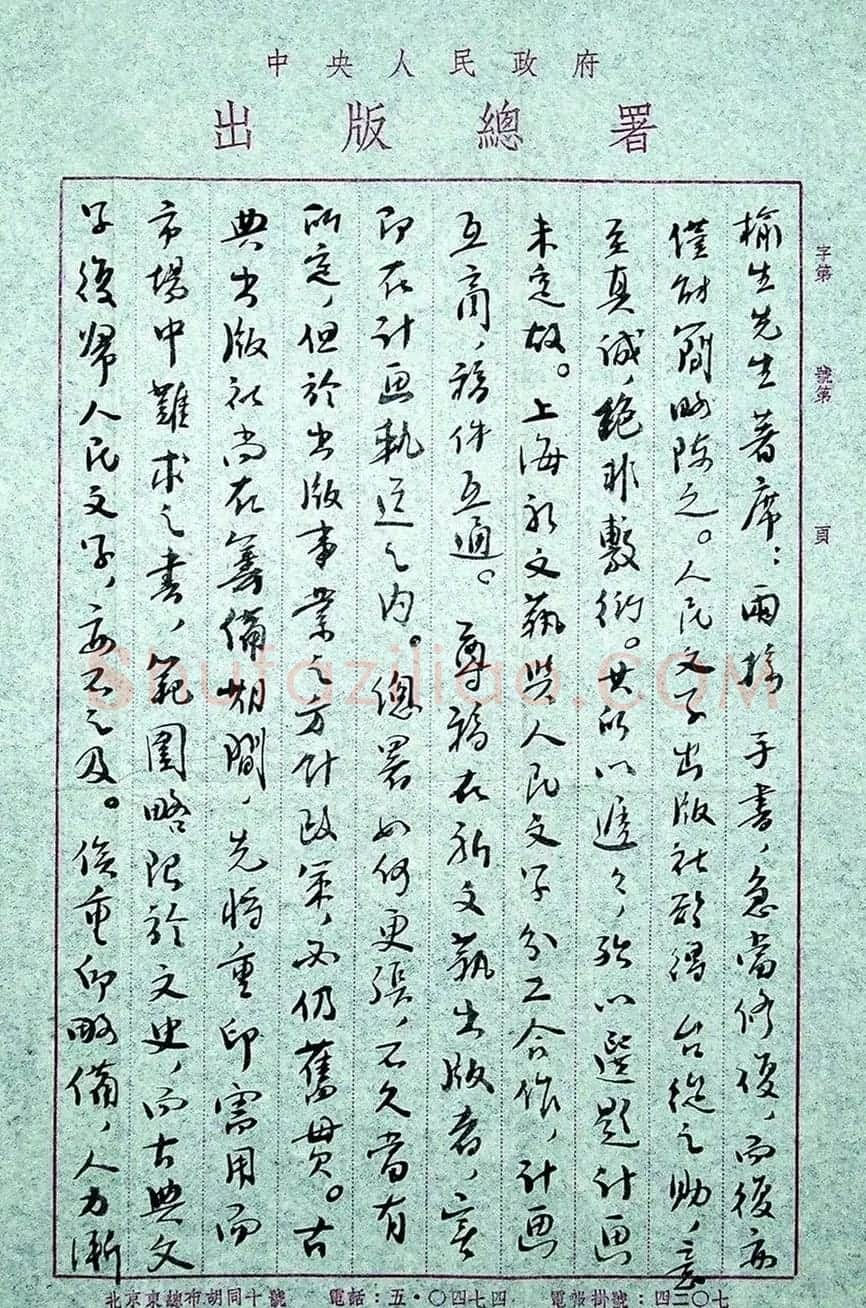 中央人民政府
出版總署
字第 號第 頁
榆生先生著席：兩接 手書，急當修復，而復亦
僅能簡略陳之。人民文学出版社頗得 台從之助，意
至真誠，絕非敷衍。其所以遲々，殆以選題計画
未定故。上海新文藝與人民文学分工合作，計画
互商，稿件互通。 尊稿在新文藝出版者，實
即在計画軌道之内。總署如何更張，不久當有
所定，但於出版事業之方針政策，必仍舊貫。古
典出版社尚在籌備期間，先將重印需用而
市場中難求之書，範圍略限於文史，而古典文
学復歸人民文学，故不之及。俟重印略備，人力漸
北京東總布胡同十號 電話：五·〇四七四 電報掛號：四二〇七
Shufaziliao.COM